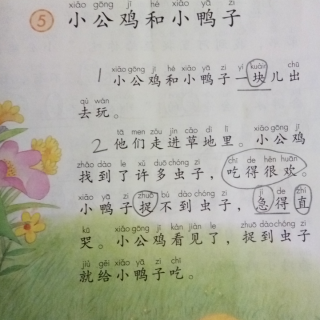 xiǎo gōng jī hé xiǎo yā zi
5 小公鸡和小鸭子
xiǎo gōng jī hé xiǎo yā zi yí kuàir chū
1 小公鸡和小鸭子一块儿出
qù wán
去玩。
tā men zǒu jìn cǎo dì lǐ xiǎo gōng jī
2 他们走进草地里。小公鸡
zhǎo dào le xǔ duō chóng zi chī de hěn huān
找到了许多虫子，吃得很欢。
xiǎo yā zi zhuō bú dào chóng zi jí de zhí
小鸭子捉不到虫子，急得直
kū xiǎo gōng jī kàn jiàn le zhuō dào chóng zi
哭。小公鸡看见了，捉到虫子
jiù gěi xiǎo yā zi chī
就给小鸭子吃。